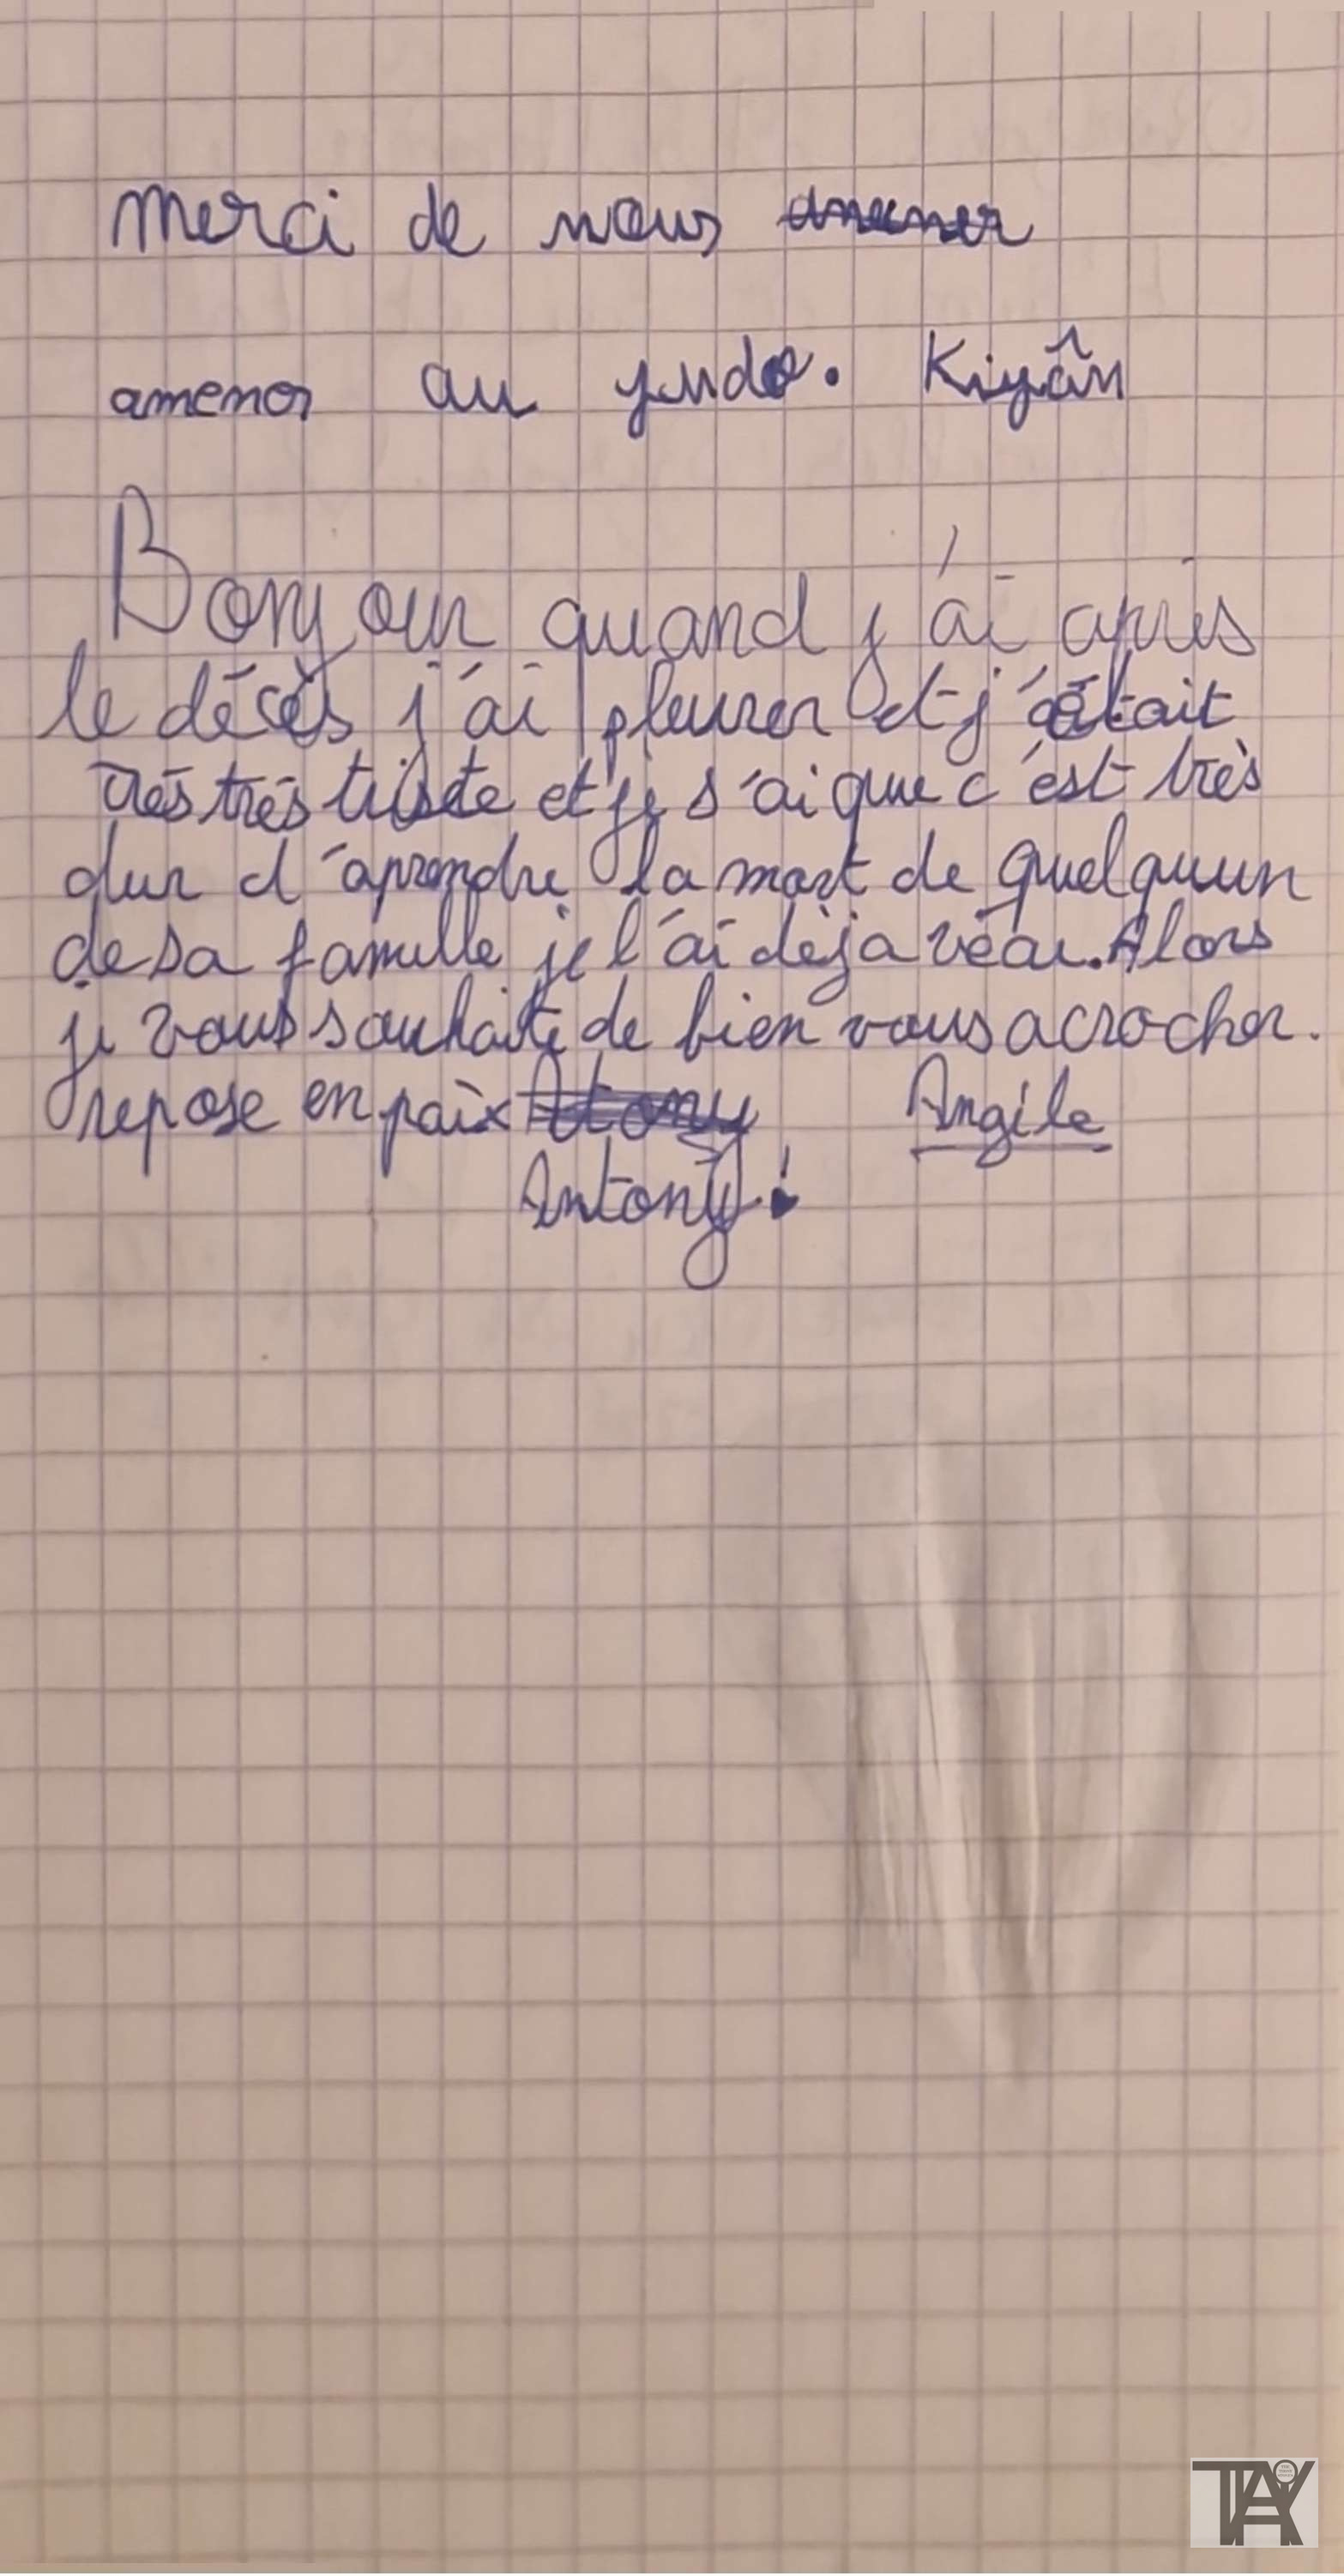 merci de nous
amener au judo. Kiyân
Bonjour quand j'ai apris
le décès j'ai pleurer et j'était
très très triste et je s'ai que c'est très
dur d'aprendre la mort de quelquun
de sa famille je l'ai dèja vécu. Alors
je vous souhaite de bien vous acrocher.
repose en paix Angèle
Antony!
TAY